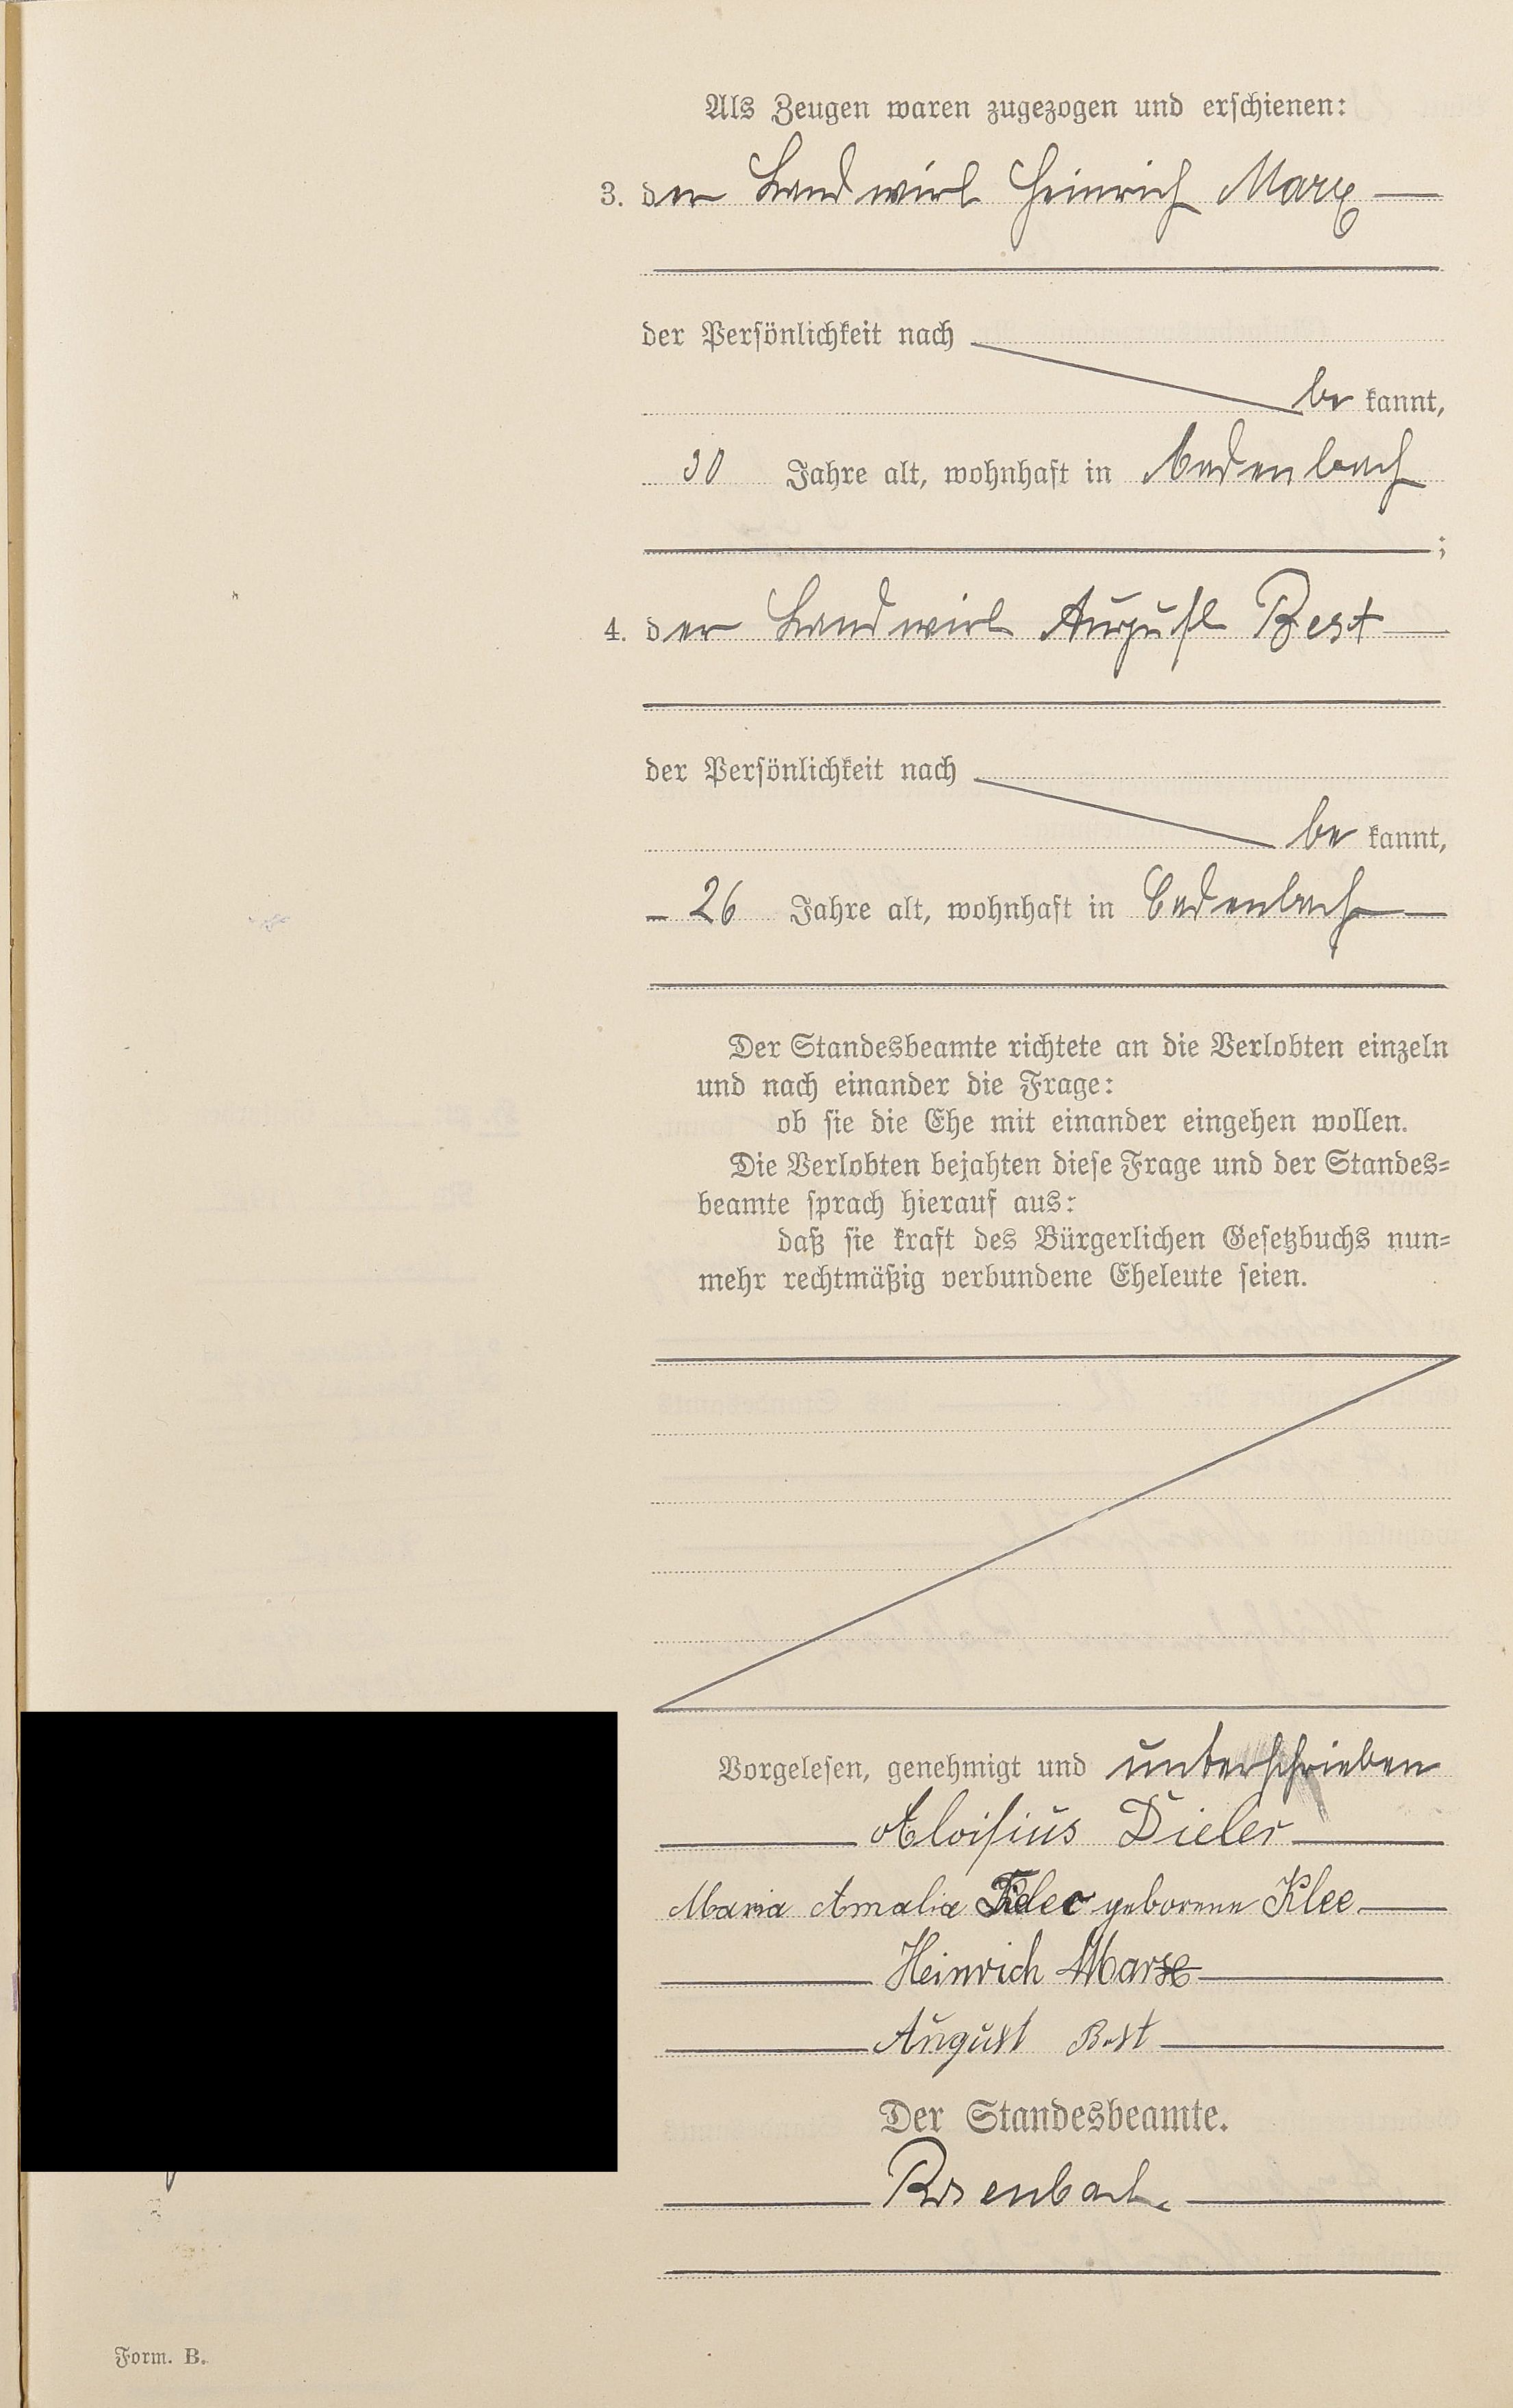 Als Zeugen waren zugezogen und erschienen:
3. der Landwirt Heinrich Marx
der Persönlichkeit nach
be kannt,
30 Jahre alt, wohnhaft in Badenbach
;
4. der Landwirt August Best
der Persönlichkeit nach
be kannt,
26 Jahre alt, wohnhaft in Badenbach
Der Standesbeamte richtete an die Verlobten einzeln
und nach einander die Frage:
ob sie die Ehe mit einander eingehen wollen.
Die Verlobten bejahten diese Frage und der Standes=
beamte sprach hierauf aus:
daß sie kraft des Bürgerlichen Gesetzbuchs nun=
mehr rechtmäßig verbundene Eheleute seien.
Vorgelesen, genehmigt und unterschrieben
Aloisius Dieler
Maria Amalia geborene Klee
Heinrich Marx
August Best
Der Standesbeamte.
Rosenbach
Form. B.